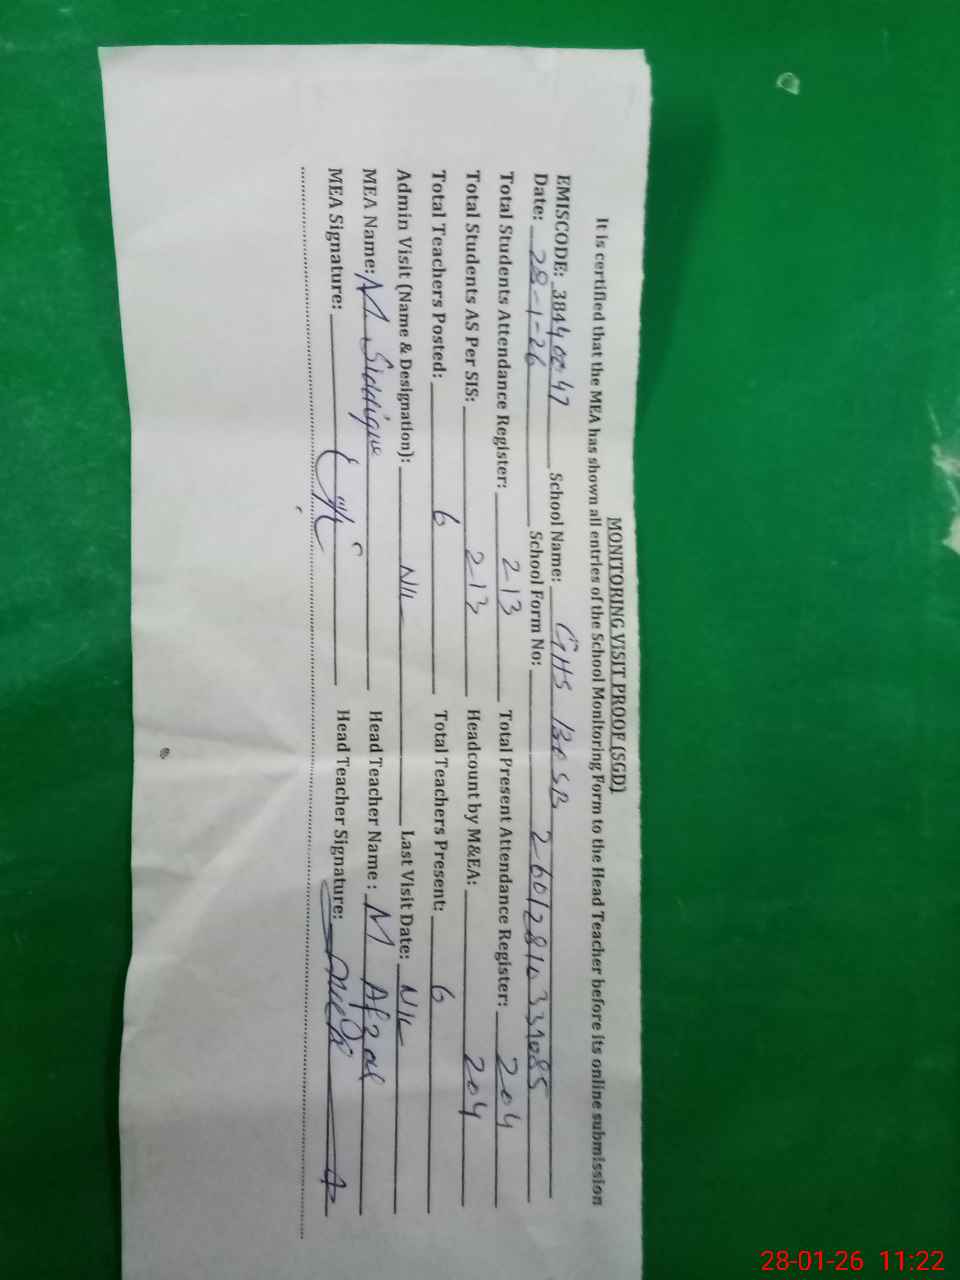 MONITORING VISIT PROOF (SGD)
It is certified that the MEA has shown all entries of the School Monitoring Form to the Head Teacher before its online submission
EMISCODE: 38440047 School Name: GHS 130 SB
Date: 28-1-26 School Form No: 2601281033
Total Students Attendance Register: 213 Total Present Attendance Register: 204
Total Students AS Per SIS: 213 Headcount by M&EA: 204
Total Teachers Posted: 6 Total Teachers Present: 6
Admin Visit (Name & Designation): NIL Last Visit Date: NIL
MEA Name: M Siddique Head Teacher Name : M Afzal
MEA Signature: Head Teacher Signature:
28-01-26 11:22